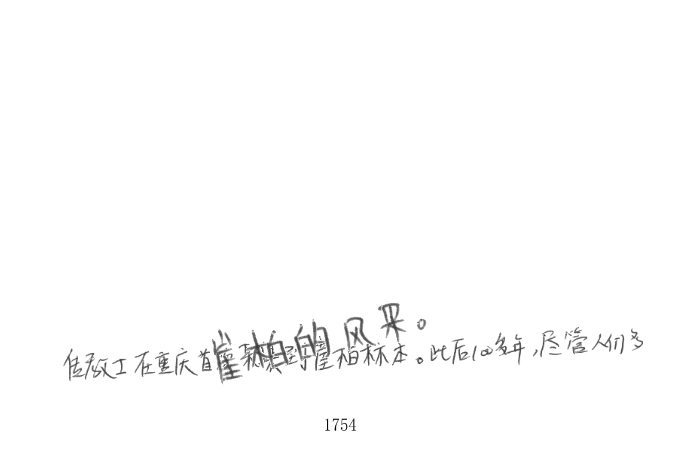 崖柏的风采。
传教士在重庆首次采集到崖柏标本。此后100多年,尽管人们多
1754